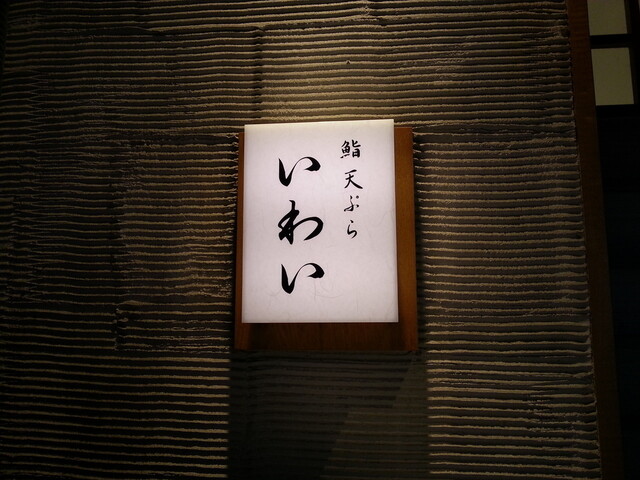 鮨天ぷら
いわい